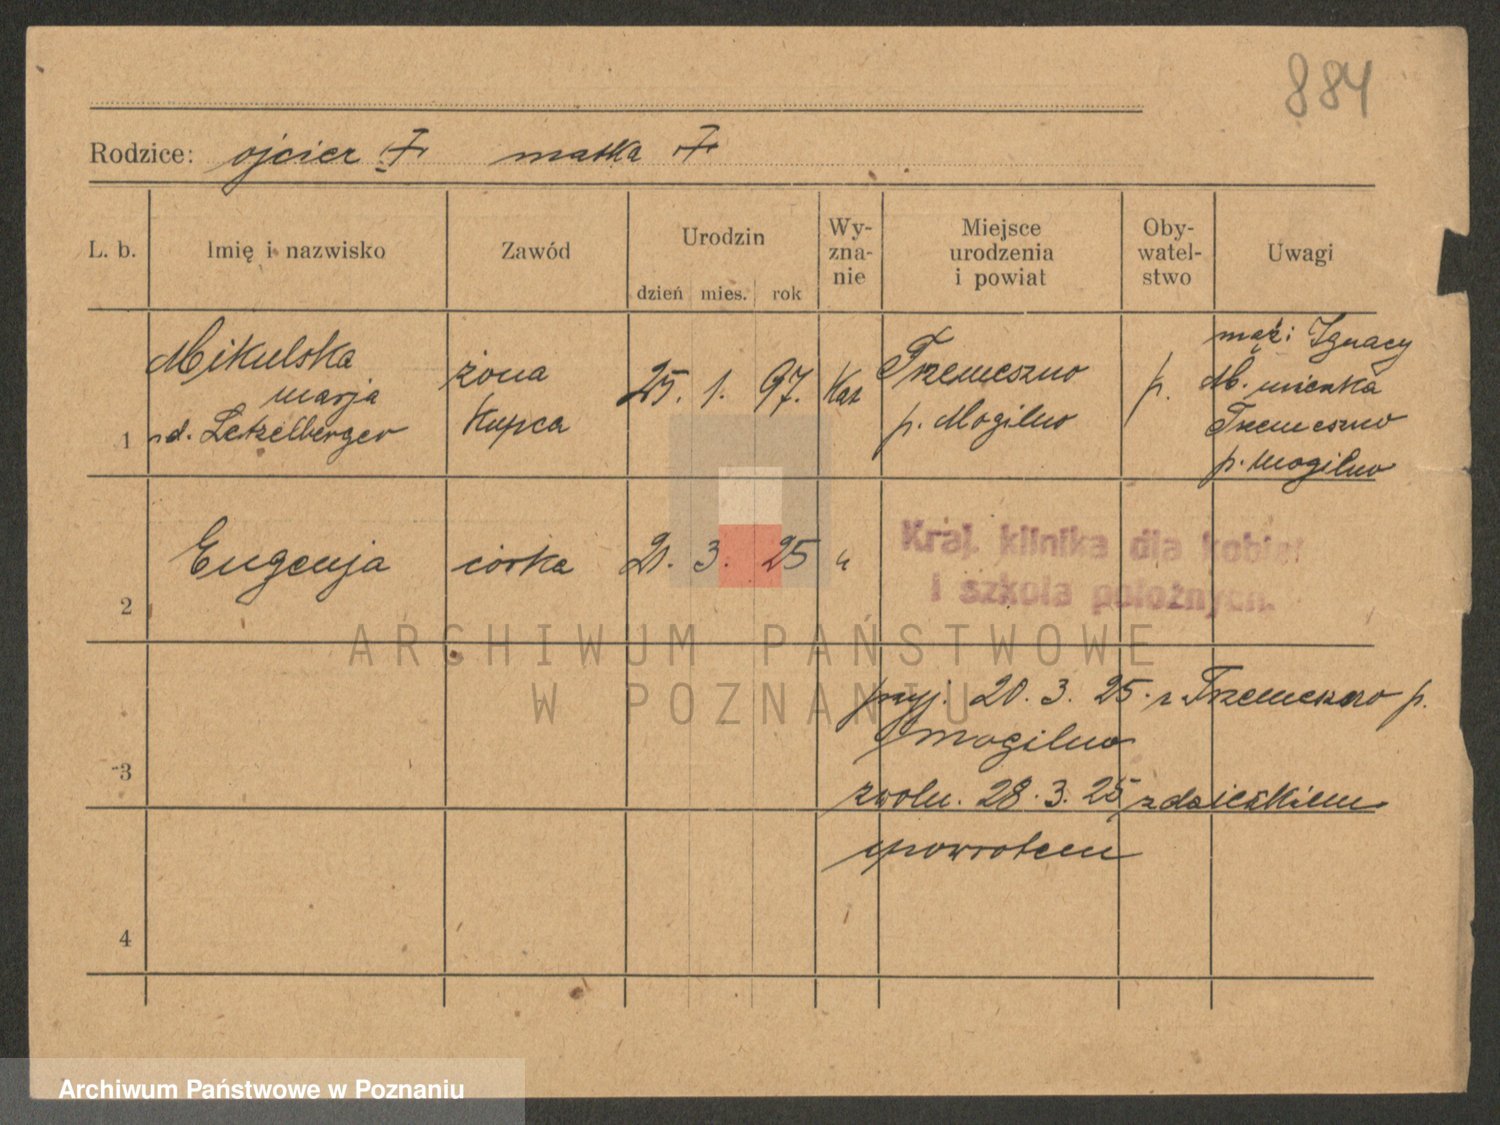 884
Rodzice: ojciec † matka †
L. b. Imię i nazwisko Zawód Urodzin dzień mies. rok Wy-zna-nie Miejsce urodzenia i powiat Oby-watel-stwo Uwagi
1 Mikulska żona 25. 1. 97. Kat Trzemeszno p. mąż: Ignacy
marja kupca p. Mogilno M. mieszka
d. Letzelberger Trzemeszno
p. Mogilno
2 Eugenja córka 20. 3. 25 "
Kraj. klinika dla kobiet
i szkoła położnych.
ARCHIWUM PAŃSTWOWE
W POZNANIU
3 przyj. 20. 3. 25. z Trzemeszno p.
Mogilno
zwoln. 28. 3. 25 z dzieckiem
zpowrotem
4
Archiwum Państwowe w Poznaniu